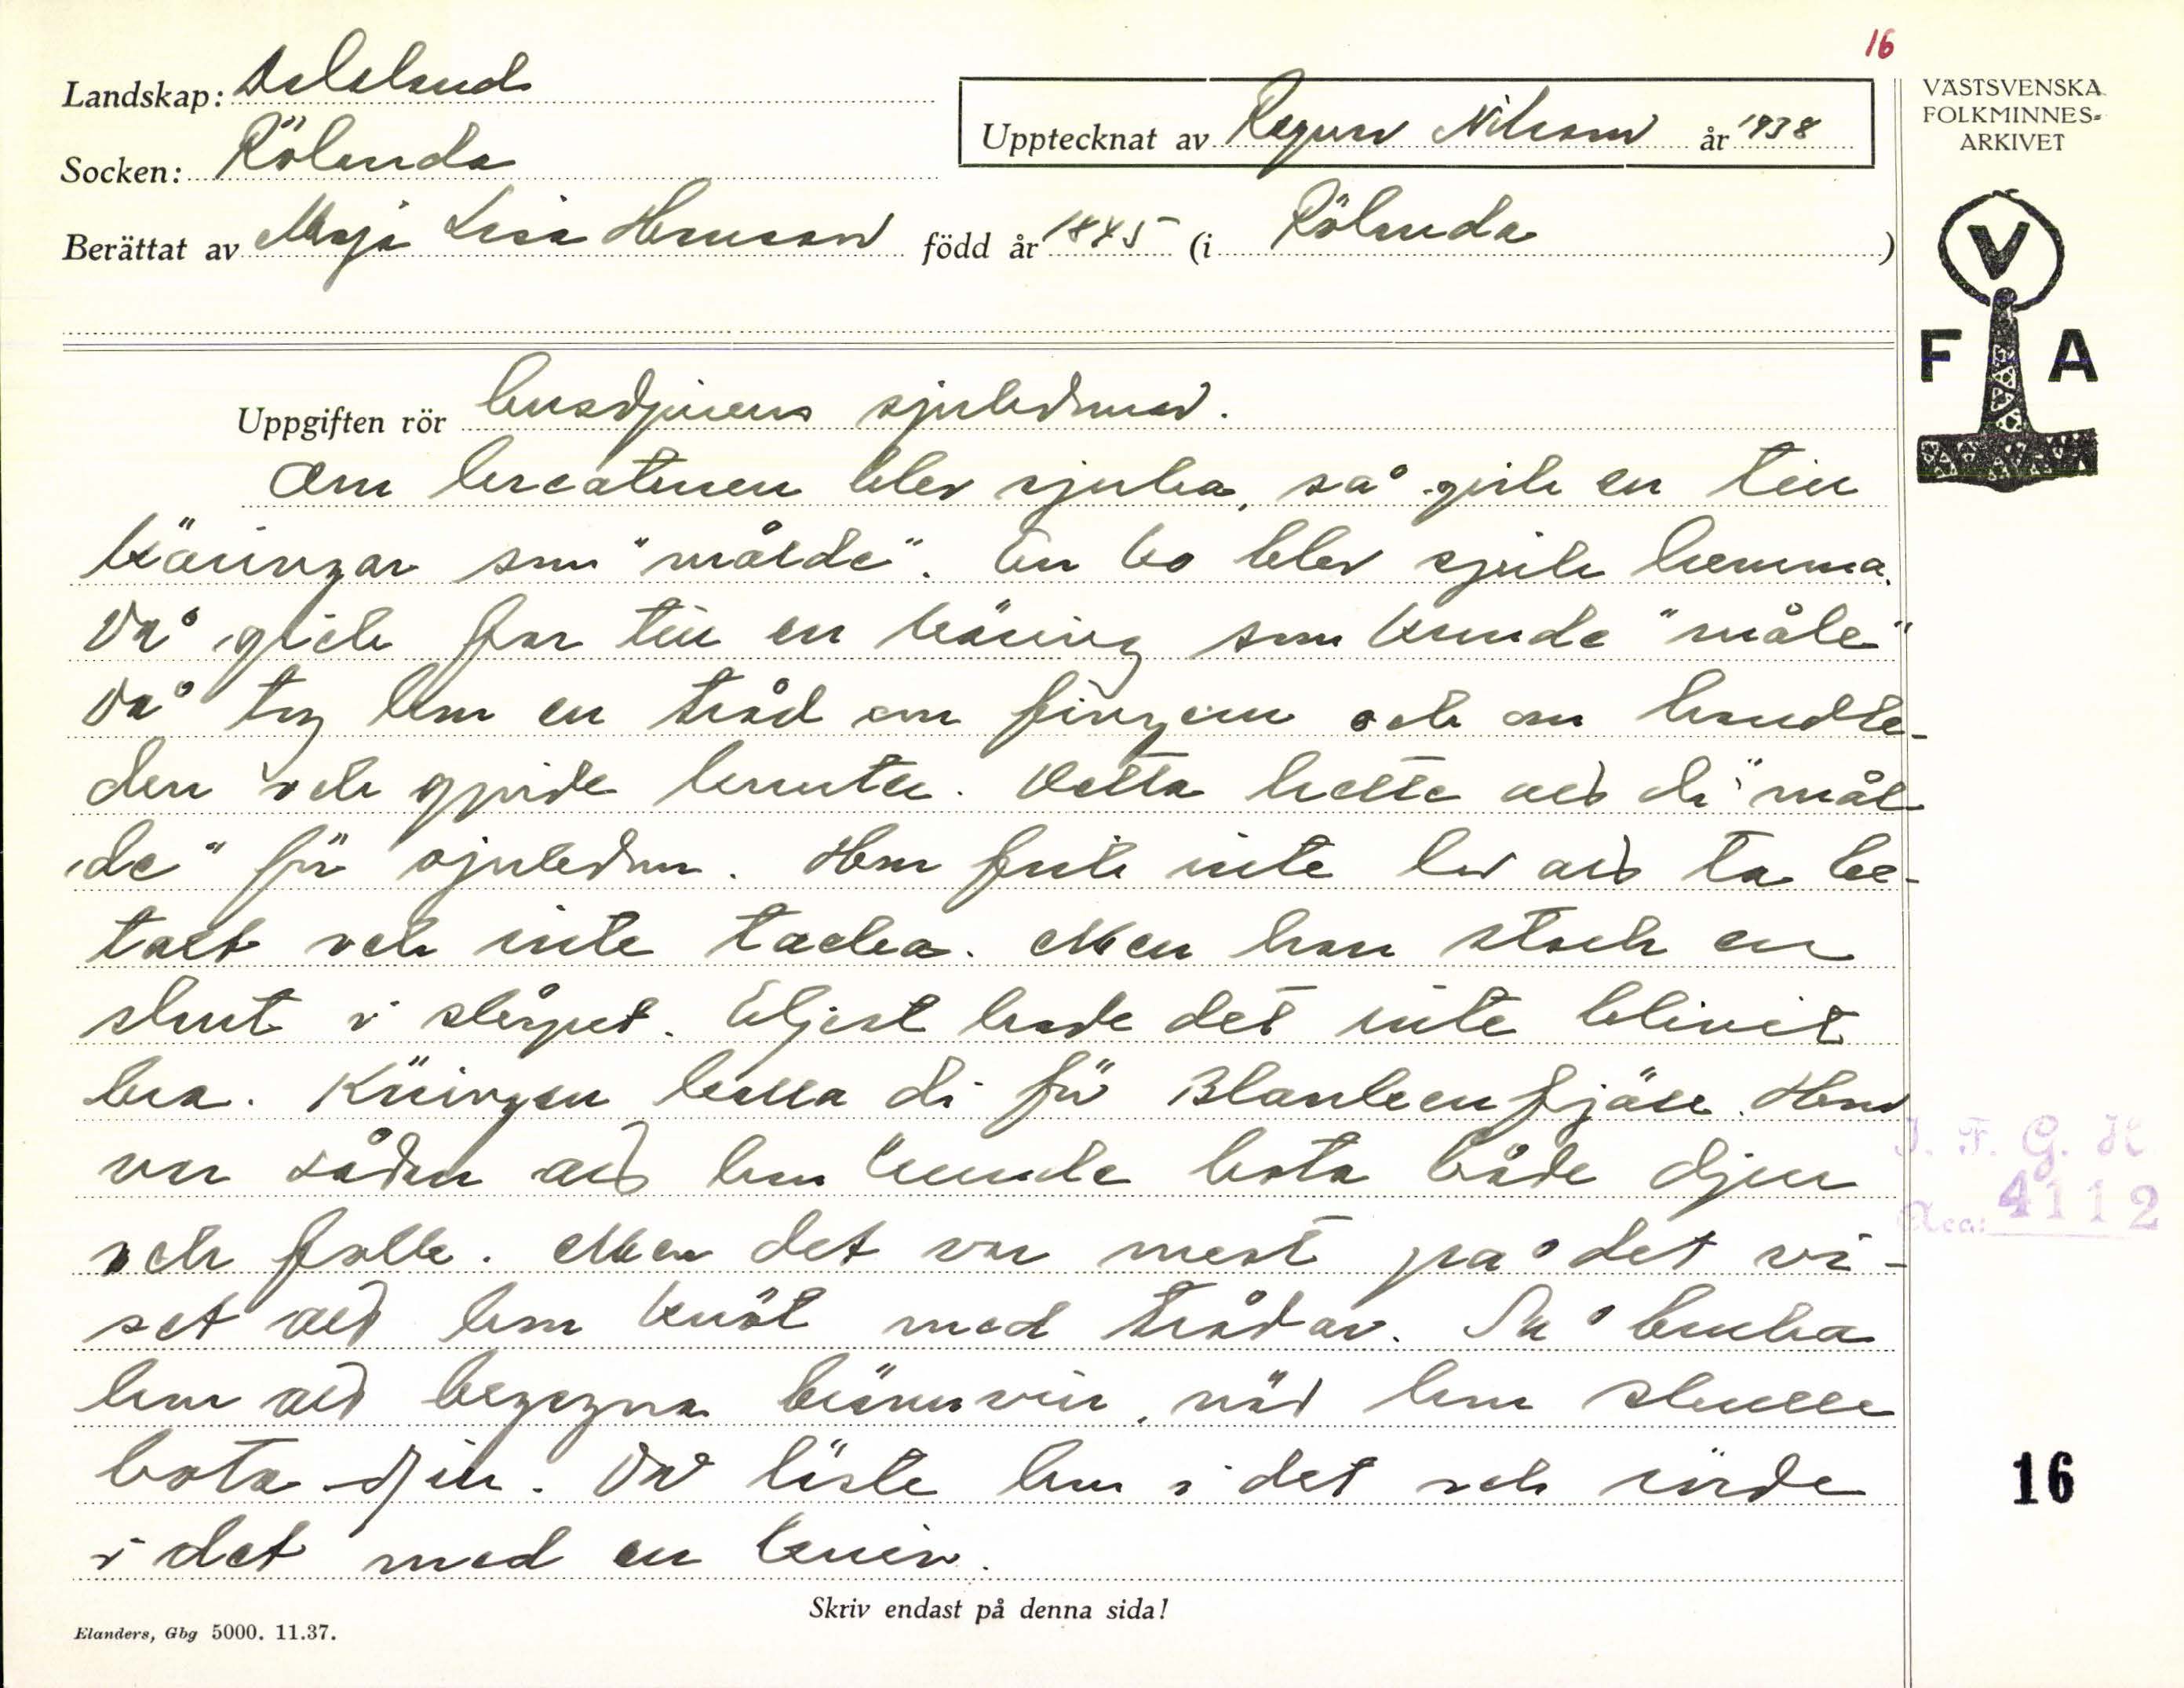 16
Landskap: Dalsland
Socken: Rölanda
Upptecknat av Ragnar Nilsson år 1938
Berättat av Maja Lisa Hansson född år 1845 (i Rölanda)
VÄSTSVENSKA
FOLKMINNES-
ARKIVET
V
F A
Uppgiften rör husdjurens sjukdomar.
Om kreaturen blev sjuka, så gick en till
käringar som "målde". En ko blev sjuk hemma.
Då gick far till en käring som kunde "måle"
Då tog hon en tråd om fingern och om handle-
den och gjorde knutar. Detta hette att di "mål
de" för sjukdom. Hon fick inte lov att ta be-
talt och inte tacka. Men han stack en
slant i skåpet. Eljest hade det inte blivit
bra. Käringen kalla di för Blankenfjäll. Hon
var sådan att hon kunde bota både djur
och folk. Men det var mest på det vi-
set att hon knöt med trådar. Så bruka
hon att begagna brännvin, när hon skulle
bota djur. Då läste hon i det och rörde
i det med en kniv.
I. F. G. H
Acc: 4112
16
Skriv endast på denna sida!
Elanders, Gbg 5000. 11.37.